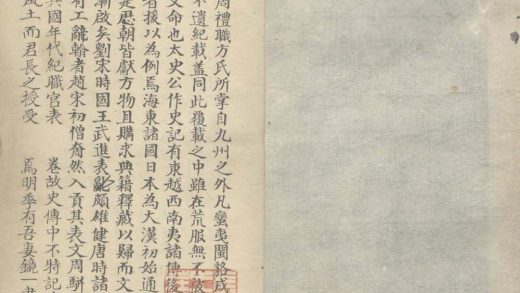 周禮職方氏所掌自九州之外凡蠻夷閩貉戎
不遺紀載蓋同此覆載之中雖在荒服無不被
文命也太史公作史記有東越西南夷諸傳後
者援以為例焉海東諸國日本為大漢初始通
是歷朝皆獻方物且購求典籍釋藏以歸而文
漸啟矣劉宋時國王武進表辭頗雄健唐時諸
有工辭翰者趙宋初僧奝然入貢其表文周駢
其國年代紀職官表　卷故史傳中不特記
風土而君長之授受　焉明季有吾妻鏡一書